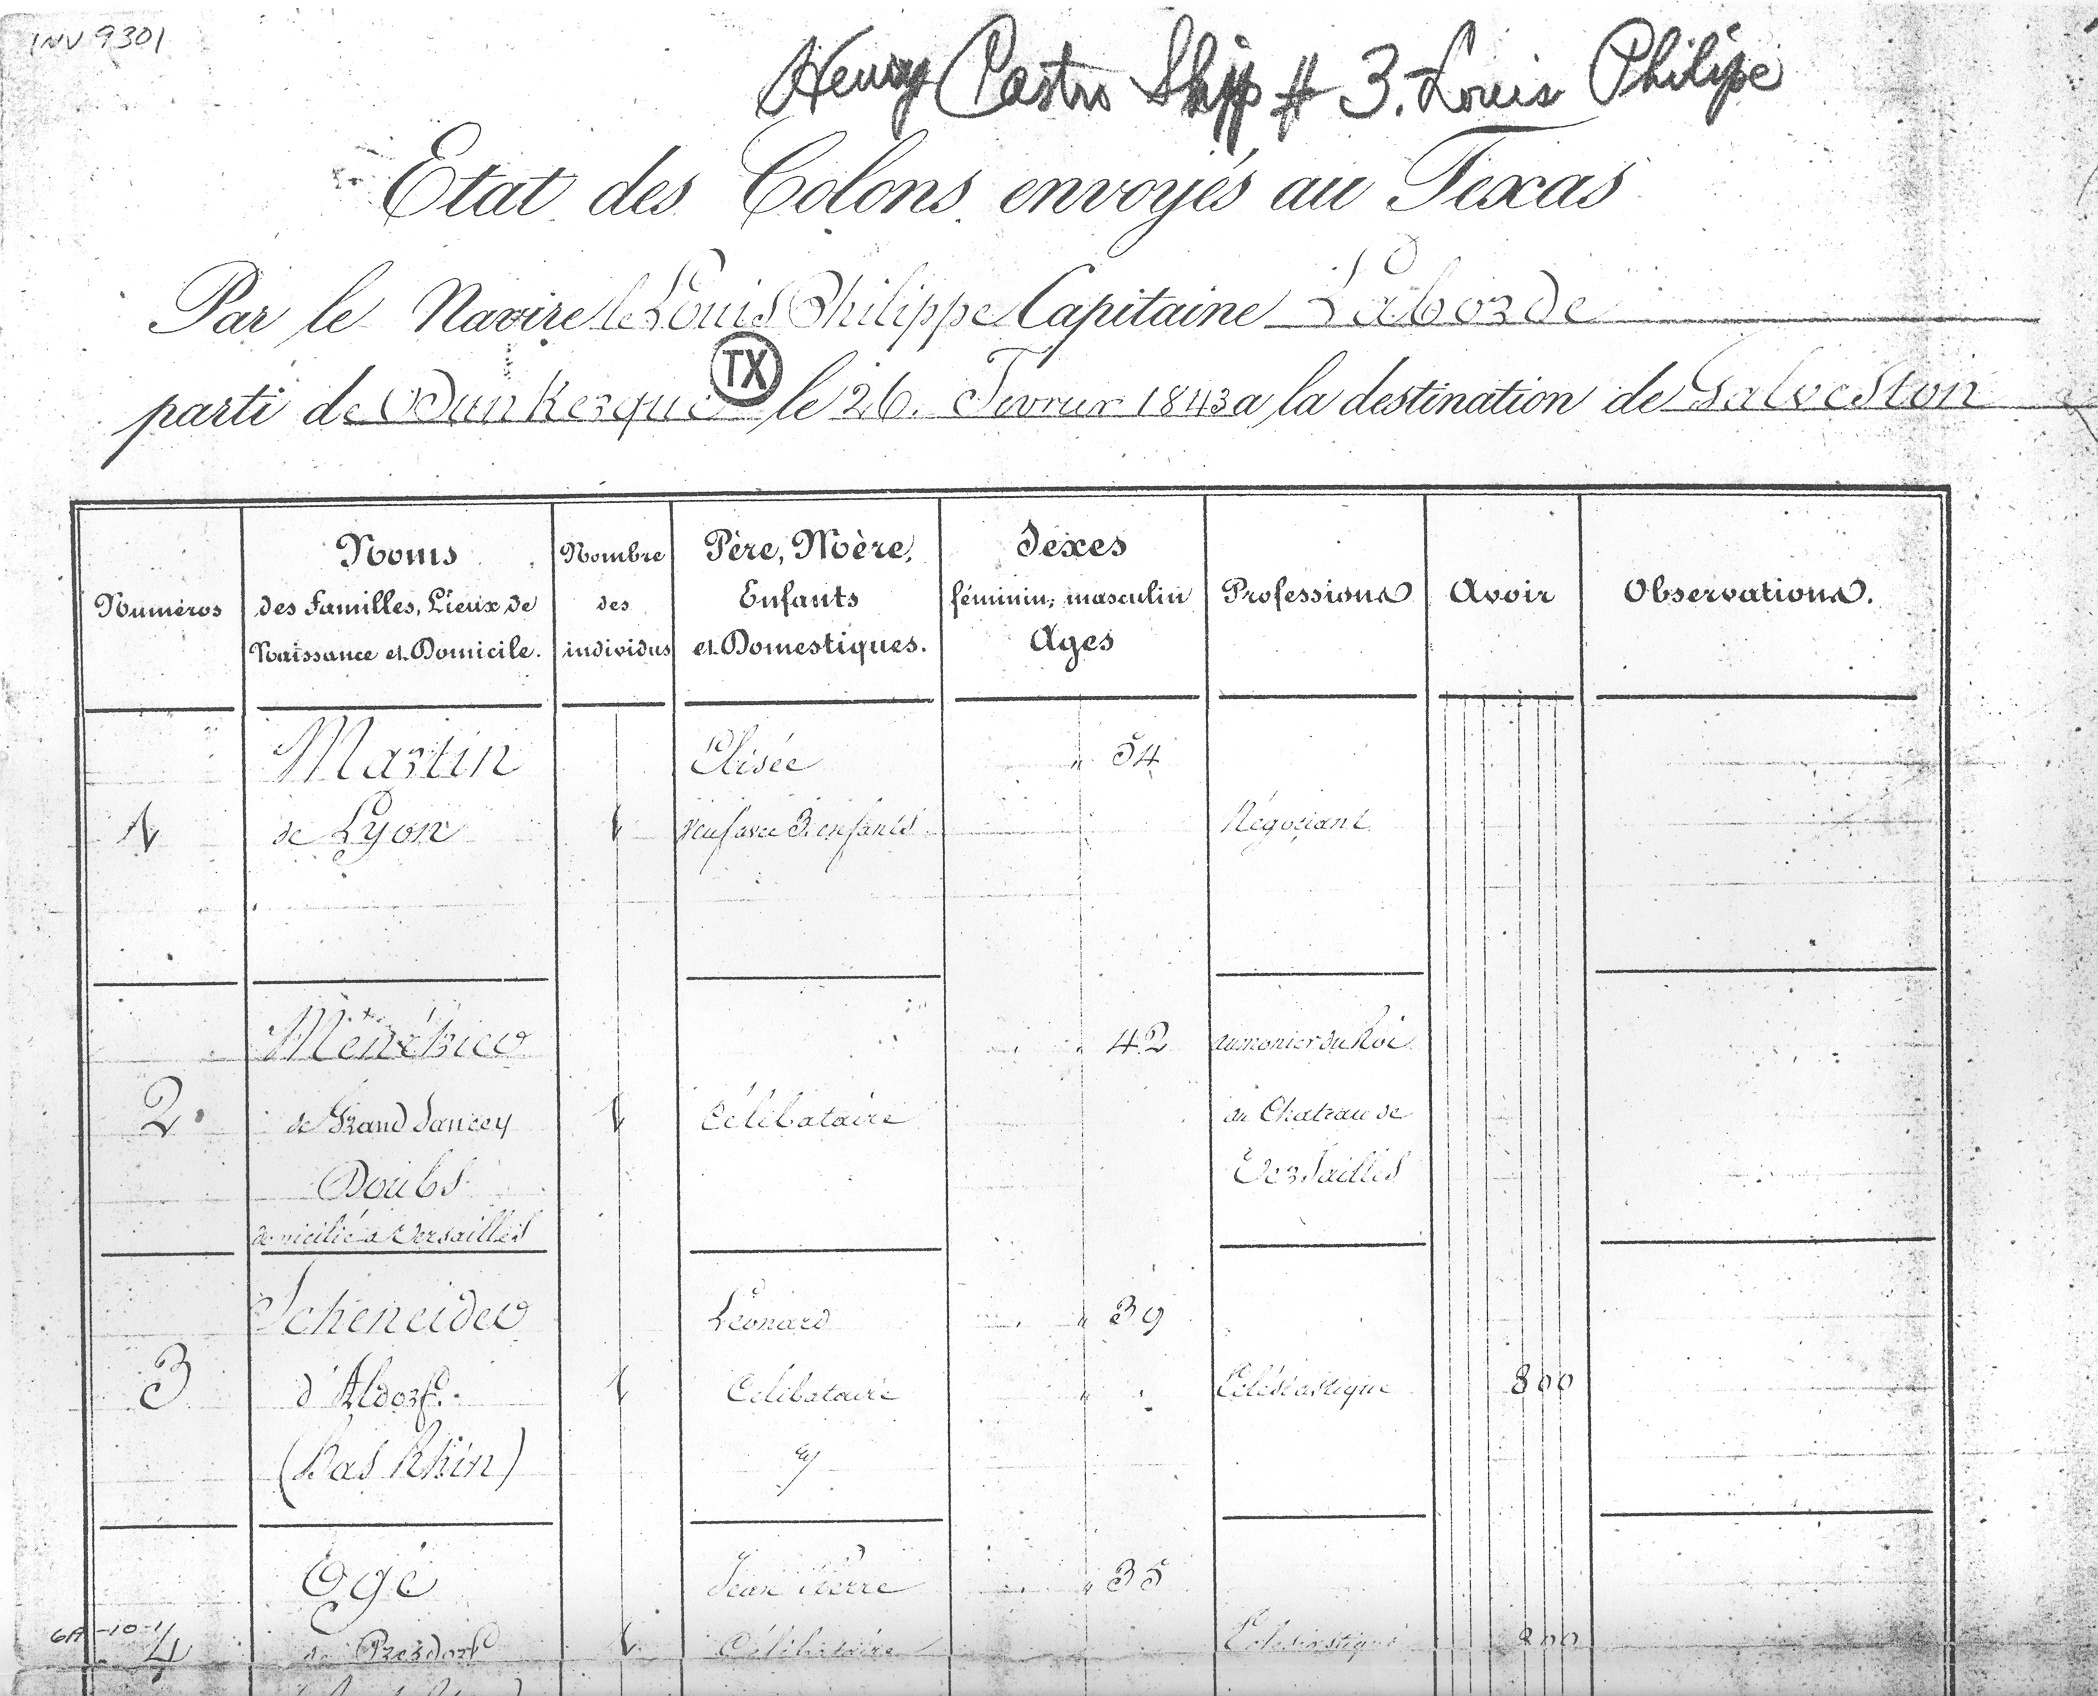 INV 9301
Henry Castro Ship # 3. Louis Philipe
Etat des Colons envoyés au Texas
Par le Navire le Louis Philippe Capitaine Laborde
TX
parti de Dunkerque le 26. Fevrier 1843 a la destination de Galveston
Numéros
Noms
des Familles, Lieux de
Naissance et Domicile.
Nombre
des
individus
Père, Mère,
Enfants
et Domestiques.
Sexes
féminin; masculin
Ages
Professions
Avoir
Observations.
Martin Elisée " 54
1 de Lyon 1 Veuf avec 3 enfants Négociant
Ménétrier 42 aumonier du Roi
2. de Grand Sancey 1 Célibataire au Chateau de
Doubs Versailles
domicilié a Versailles
Scheneider Léonard " 39
3 d'Aldorf. 1 Celibataire " Eclésiastique 800
(Bas Rhin)
Ogé Jean Pierre " 35
6A -10-1
4 de 1 Célibataire Eclesiastique 800